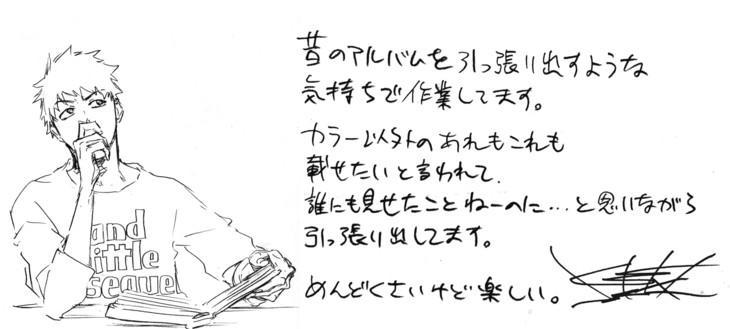 and
little
sequel
昔のアルバムを引っ張り出すような
気持ちで作業してます。
カラー以外のあれもこれも
載せたいと言われて、
誰にも見せたことねーのに…と思いながら
引っ張り出してます。
めんどくさいけど楽しい。